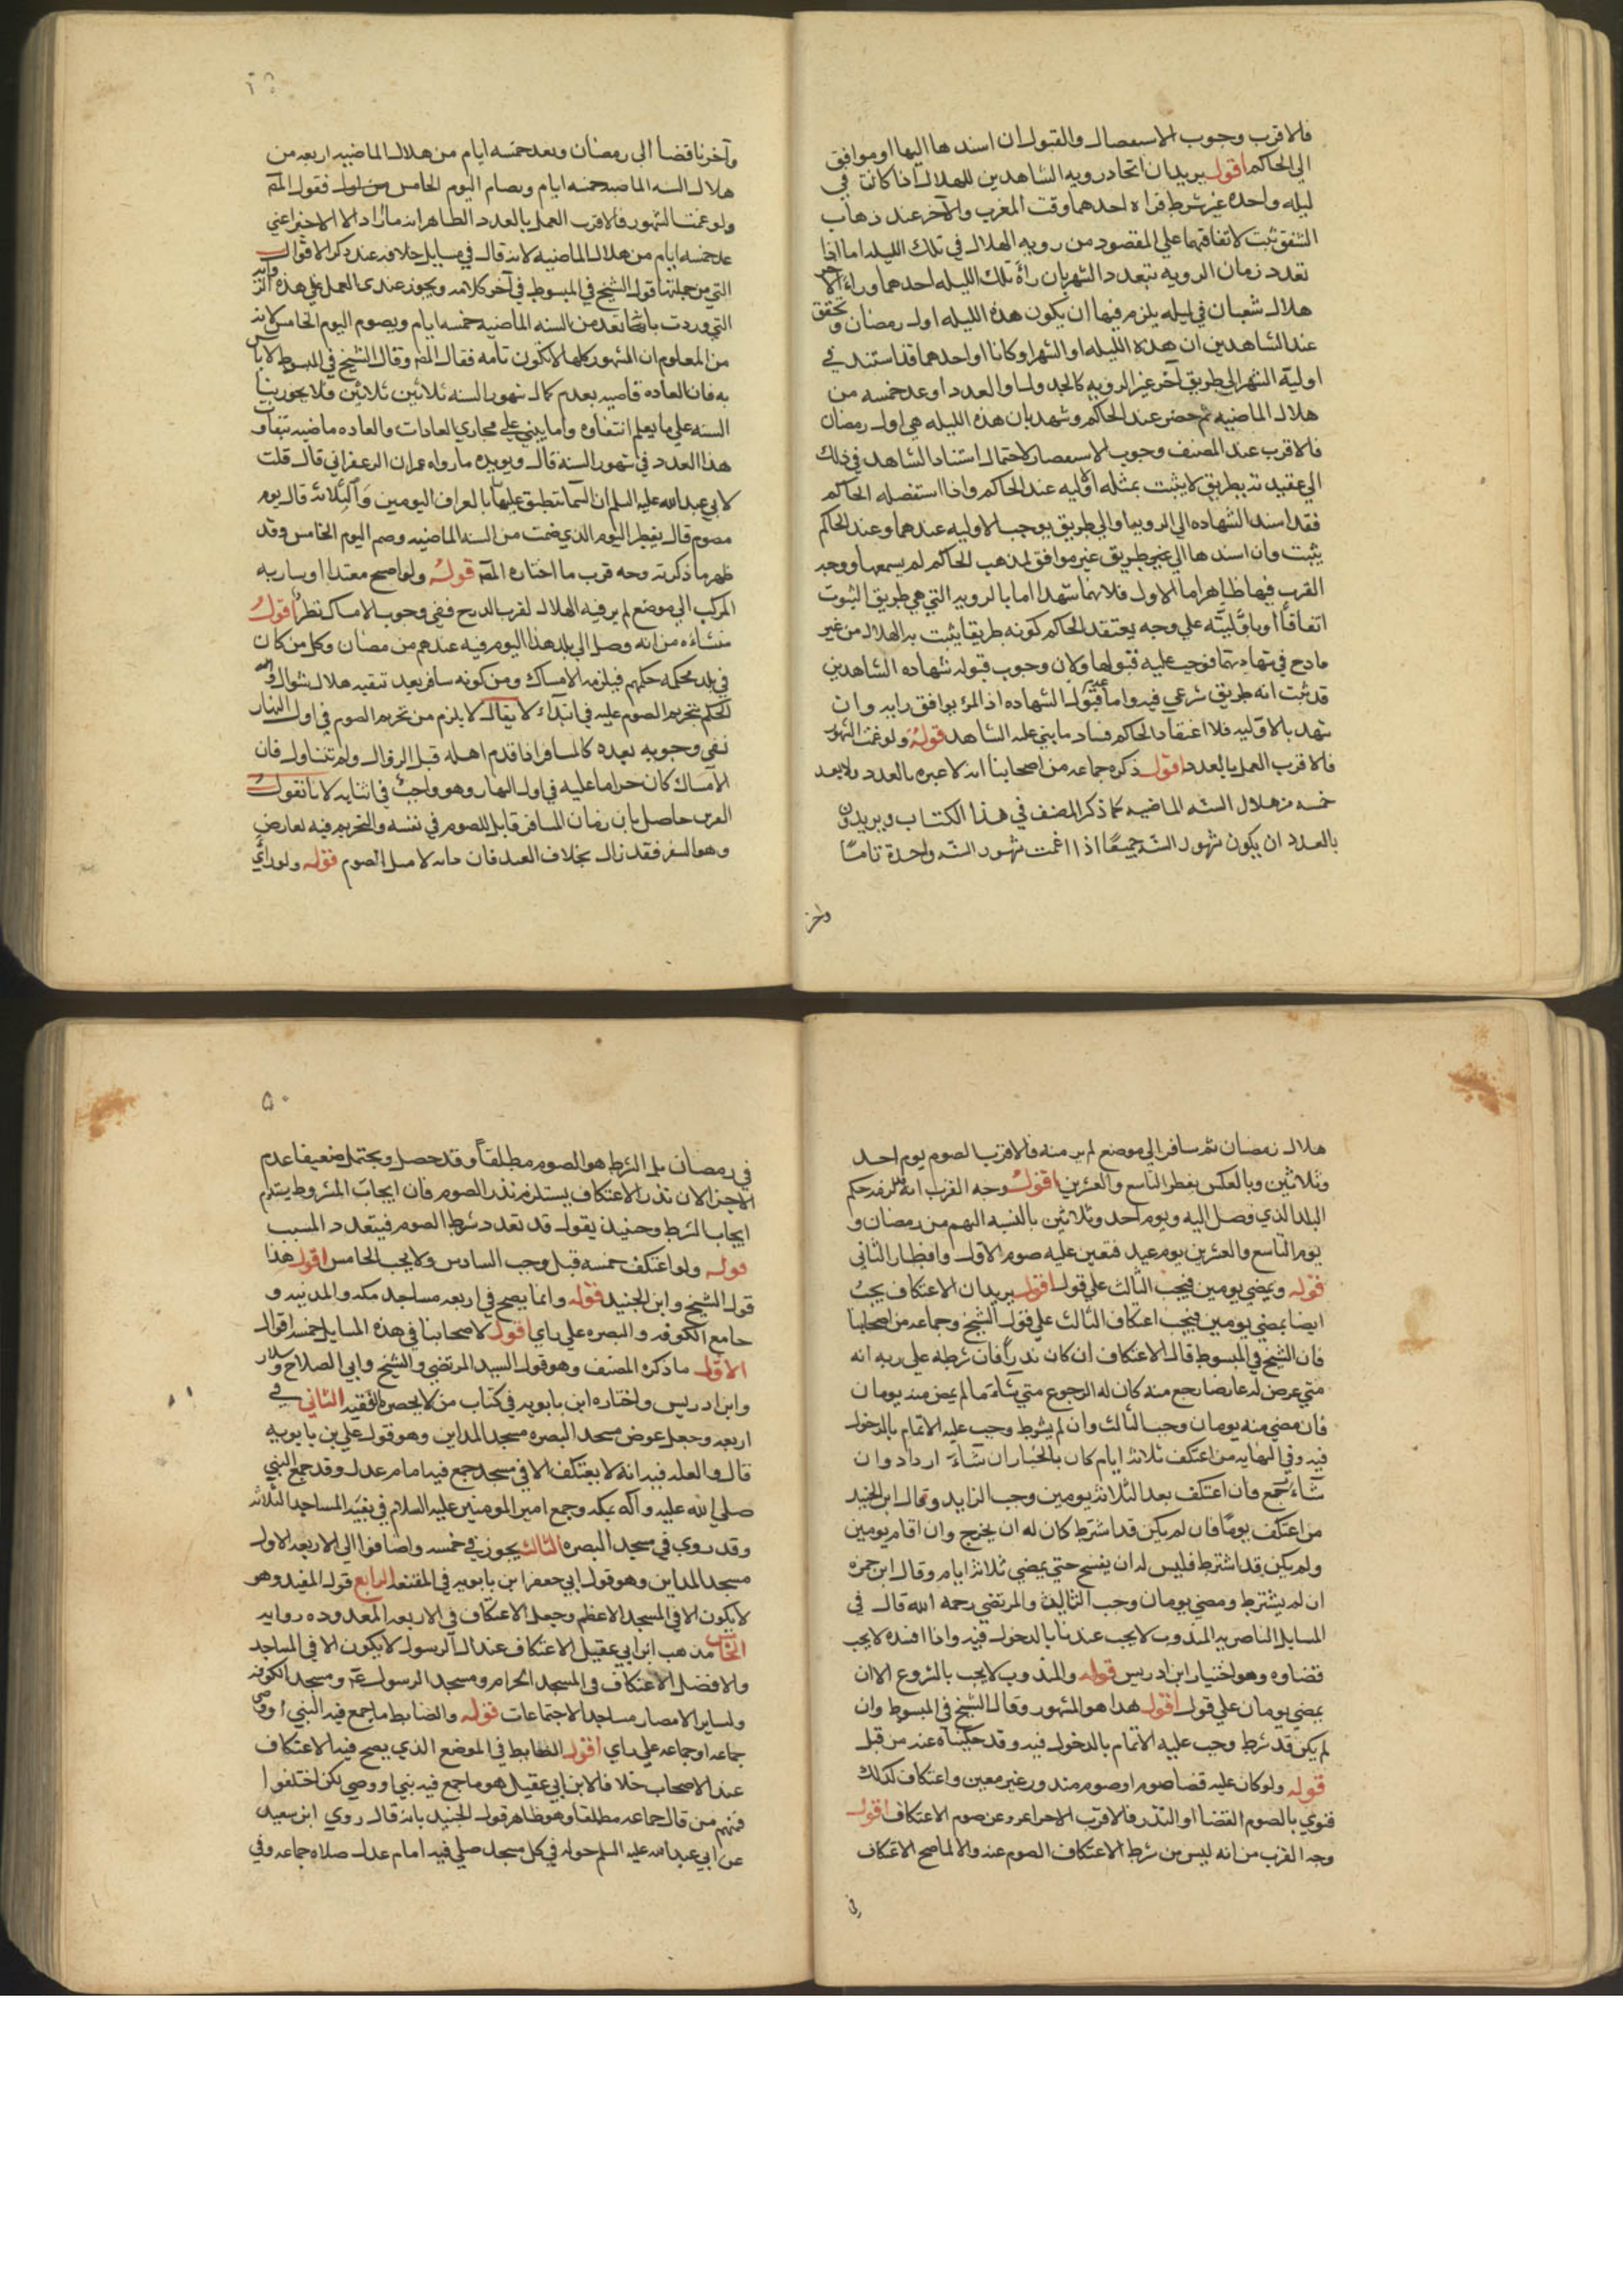 فالاقرب وجوب الاستفصال والقبول ان اسندها اليها او موافق
الى الحاكم اقول يريد ان اتحاد رويه الشاهدين للهلال اذا كانت في
ليله واحده غير شرط فراه احدهما وقت المغرب والاخر عند ذهاب
الشفق ثبت لاتفاقهما علي المقصود من رويه الهلال في تلك الليله اما اذا
تعدد زمان الرويه بتعدد الشهر بان راه تلك الليله احدهما وراى الاخر
هلال شعبان في ليله يلزم فيها ان يكون هذه الليله اول رمضان وتحقق
عند الشاهدين ان هذه الليله او الشهر او كانا او احدهما قد استند في
اولية الشهر الى طريق آخر غير الرويه كالجدول او العدد او عد خمسه من
هلال الماضيه ثم حضر عند الحاكم وشهد بان هذه الليله هي اول رمضان
فالاقرب عند المصنف وجوب الاستفصار لاحتمال استناد الشاهد في ذلك
الي عقيدته بطريق لا يثبت بمثله اوليه عند الحاكم واذا استفصله الحاكم
فقد اسند الشهاده الى الرويه او الى طريق يوجب الاوليه عندهما وعند الحاكم
يثبت وان اسندها الى غير طريق غير موافق لمذهب الحاكم لم يسمعها ووجه
القرب فيها ظاهر اما الاول فلانهما شهدا اما بالرويه التي هي طريق الثبوت
اتفاقا او باوليته علي وجه يعتقد الحاكم كونه طريقا يثبت به الهلال من غير
قادح في شهادتهما فوجب عليه قبولها ولان وجوب قبوله شهاده الشاهدين
قد ثبت انه طريق شرعي فيه واما عدم قبول الشهاده اذا لم يوافق رايه وان
شهد بالاوليه فلاعتقاد الحاكم فساد ما بني عليه الشاهد قوله ولو غمت الشهور
فالاقرب العمل بالعدد اقول ذكره جماعه من اصحابنا انه لا عبره بالعدد ولا بعد
خمسه من هلال السنه الماضيه كما ذكر المصنف في هذا الكتاب ويريدون
بالعدد ان يكون شهور السنه جميعا اذا غمت شهور السنه واحدة تامًا
واخر
وآخر ناقصا الى رمضان وبعد خمسه ايام من هلال الماضيه اربعه من
هلال السنه الماضيه خمسه ايام ويصام اليوم الخامس من اول فقول المصـ
ولو غمت الشهور فالاقرب العمل بالعدد الظاهر انه ما اراد الا الاخير اعني
عد خمسه ايام من هلال الماضيه لانه قال في مسايل خلافه عند ذكر الاقوال
التي من جملتها قول الشيخ في المبسوط في آخر كلامه ويجوز عندى العمل علي هذه الروايه
التي وردت بانها تعد من السنه الماضيه خمسه ايام ويصوم اليوم الخامس لانه
من المعلوم ان الشهور كلها لا تكون تامه فقال المصـ وقال الشيخ في المبسوط لا باس
به فان العاده قاضيه بعدم كمال شهور السنه ثلاثين ثلاثين فلا يجوز بنا
السنه علي ما يعلم انتفاوه وانما يبني علي مجاري العادات والعاده ماضيه بتفاوت
هذا العدد في شهور السنه قال ويويده ما رواه عمران الزعفراني قال قلت
لابي عبدالله عليه السلم ان السما تطبق علينا بالعراق اليومين والثلاثه فاي يوم
نصوم قال يفطر اليوم الذي صمت من السنه الماضيه وصم اليوم الخامس وقد
ظهر ما ذكرته وجه قرب ما اختاره المصـ قوله ولو اصبح معتدا او سار به
المركب الى موضع لم ير فيه الهلال لقرب الدرج ففي وجوب الامساك نظر اقول
منشاءه من انه وصل الى بلد هذا اليوم فيه عندهم من رمضان وكل من كان
في بلد يحكمه حكمهم فيلزمه الامساك ومن كونه سافر بعد تيقنه هلال شوال واستمر
الحكم بتحريم الصوم عليه في ابتداء لا يقال لا يلزم من تحريم الصوم في اول النهار
نفي وجوبه بعده كالمسافر اذا قدم اهله قبل الزوال ولم يتناول فان
الامساك كان حراما عليه في اول النهار وهو واجبٌ في اثنايه لانا نقول
الفرق حاصل بان زمان المسافر قابل للصوم في نفسه والتحريم فيه لعارض
وهو السفر فقد زال بخلاف العيد فان مانه لا مثل الصوم قوله ولو راي
هلال رمضان ثم سافر الى موضع لم ير منه فالاقرب الصوم يوم احد
وثلاثين وبالعكس يفطر التاسع والعشرين اقول وجه القرب انه يلزمه حكم
البلد الذي وصل اليه ويوم احد وثلاثين بالنسبه اليهم من رمضان و
يوم التاسع والعشرين يوم عيد فتعين عليه صوم الاول وافطار الثاني
قوله ويمضي يومين فيجب الثالث علي قول اقول يريد ان الاعتكاف يجب
ايضا بمضي يومين فيجب اعتكاف الثالث علي قول الشيخ وجماعه من اصحابنا
فان الشيخ في المبسوط قال الاعتكاف ان كان ندرا فان شرطه علي ربه انه
متي عرض له عارضا رجع منه كان له الرجوع متي شاء ما لم يمض منه يومان
فان مضي منه يومان وجب الثالث وان لم يشرط وجب عليه الاتمام بالدخول
فيه وفي النهايه من اعتكف ثلاثه ايام كان بالخيار ان شاء ازداد وان
شاء لم يجمع فان اعتكف بعد الثلاثه يومين وجب الزايد وقال ابن الجنيد
من اعتكف يوما فان لم يكن قد اشترط كان له ان يخرج وان اقام يومين
ولم يكن قد اشترط فليس له ان يفسخ حتي يمضي ثلاثه ايام وقال ابن حمزه
ان لم يشترط ومضي يومان وجب الثالث والمرتضي رحمه الله قال في
المسايل الناصريه المندوب لا يجب عندنا بالدخول فيه واذا افسده لا يجب
قضاوه وهو اختيار ابن ادريس قوله والمندوب لا يجب بالشروع الا ان
يمضي يومان علي قول اقول هذا هو المشهور وقال الشيخ في المبسوط وان
لم يكن قد شرط وجب عليه الاتمام بالدخول فيه وقد حكيناه عنه من قبل
قوله ولو كان عليه قضا صوم او صوم منذور غير معين واعتكاف كذلك
فنوي بالصوم القضا او النذر فالاقرب الاجزاء عن صوم الاعتكاف اقول
وجه القرب من انه ليس من شرط الاعتكاف الصوم عنه والا لما صح الاعتكاف
في
٥٠
في رمضان بل الشرط هو الصوم مطلقا وقد حصل ويحتمل ضعيفا عدم
الاجزا لان نذر الاعتكاف يستلزم نذر الصوم فان ايجاب المشروط يستلزم
ايجاب الشرط وحينيذ يقول قد تعدد شرط الصوم فيتعدد المسبب
قوله ولو اعتكف خمسه قبل وجب السادس ولا يجب الخامس اقول هذا
قول الشيخ وابن الجنيد قوله وانما يصح في اربعه مساجد مكه والمدينه و
جامع الكوفه والبصره علي راي اقول لاصحابنا في هذه المسايل خمسه اقوال
الاول ما ذكره المصنف وهو قول السيد المرتضي والشيخ وابي الصلاح وسلار
وابن ادريس واختاره ابن بابويه في كتاب من لا يحضره الفقيه الثاني في
اربعه وجعل عوض مسجد البصره مسجد المداين وهو قول علي بن بابويه
قال والعله فيه انه لا يعتكف الا في مسجد جمع فيه امام عدل وقد جمع النبي
صلي الله عليه وآله بمكه وجمع امير المومنين عليه السلام في بقية المساجد الثلاثه
وقد روي في مسجد البصره الثالث يجوز في خمسه واضافوا الى الاربعه الاول
مسجد المداين وهو قول ابي جعفر ابن بابويه في المقنع الرابع قول المفيد وهو
لا يكون الا في المسجد الاعظم وجعل الاعتكاف في الاربعه المعدوده روايه
الخامس مذهب ابن ابي عقيل الاعتكاف عند ال الرسول لا يكون الا في المساجد
والافضل الاعتكاف في المسجد الحرام ومسجد الرسول ومسجد الكوفه
ولساير الامصار مساجد الاجتماعات قوله والضابط ما جمع فيه النبي او وصي
جماعه او جماعه علي راي اقول الضابط في الموضع الذي يصح فيه الاعتكاف
عند الاصحاب خلافا لابن ابي عقيل هو ما جمع فيه نبي او وصي لكن اختلفوا
فمنهم من قال جماعه مطلقا وهو ظاهر قول الجنيد بانه قال روي ابن سعيد
عن ابي عبدالله عليه السلم جوازه في كل مسجد صلي فيه امام عدل صلاه جماعه وفي